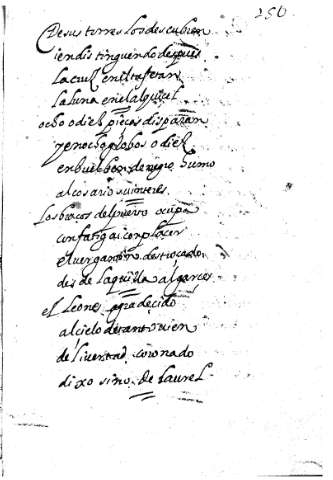 250
De sus torres los descubren
i en distinguendo despues
la cruz en el tafetan
la luna en el alquicel
ocho o diez pieças disparan
q en ocho globos o diez
enbuelben de negro humo
al cosario su interes.
Los braços del puerto ocupa
con fatiga i con placer
el vergantin destroçado
desde la quilla al garces
el Leones agradecido
al cielo de tanto vien
de livertad coronado
dixo sino de laurel.